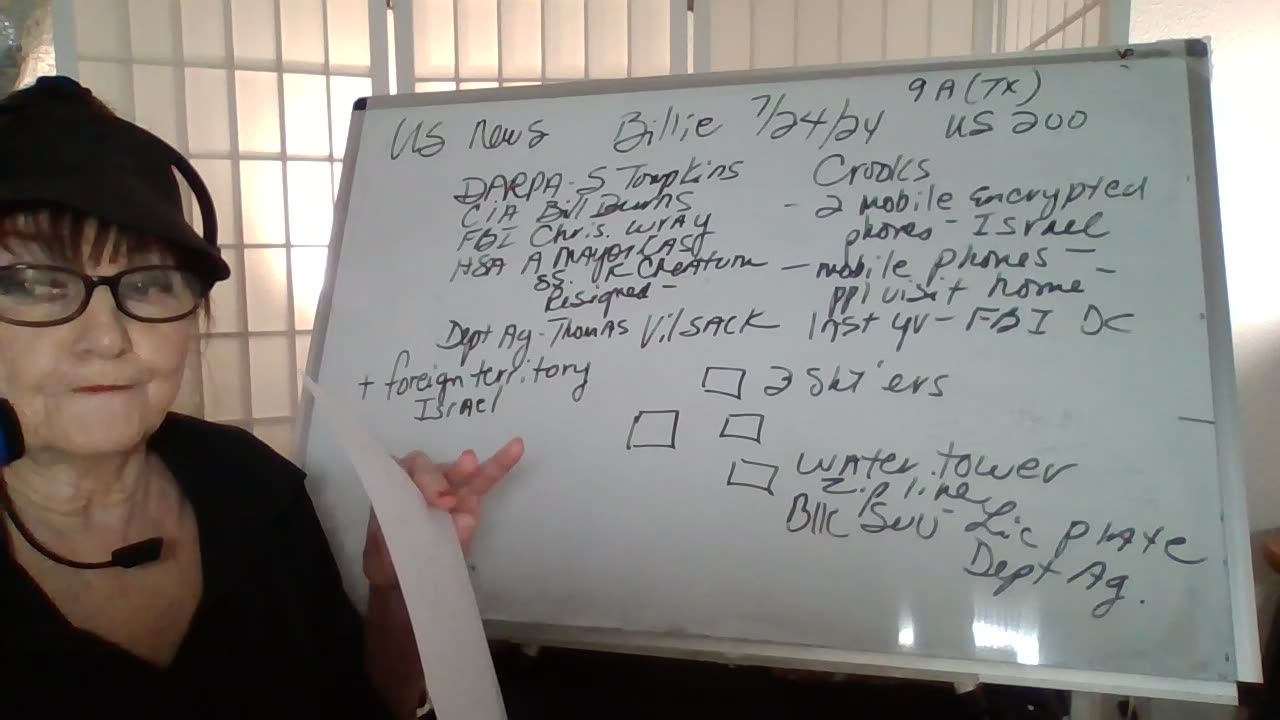 9 A (TX)
US News Billie 7/24/24 US 200
DARPA - S Tompkins
CIA Bill Burns
FBI Chris. Wray
HSA A MAyorkAS
SS. K CheAtum
Resigned -
Dept Ag - Thomas VilSACK
+ foreign territory
Israel
Crooks
- 2 mobile encrypted
phones - Israel
- mobile phones -
ppl visit home -
1 inst yv - FBI DC
2 Sht'ers
Water tower
zip line
Bllc Suv - Lic plate
Dept Ag.